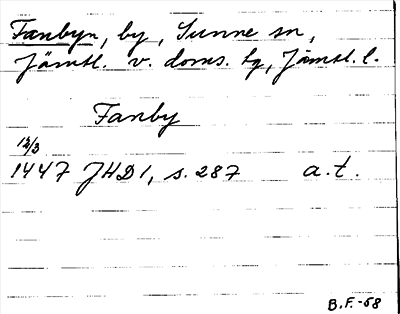 Fanbyn, by, Sunne sn,
Jämtl. v. doms. tg, Jämtl. l.
Fanby
12/3
1447 JHD 1, s. 287 a.t.
B.F.-58